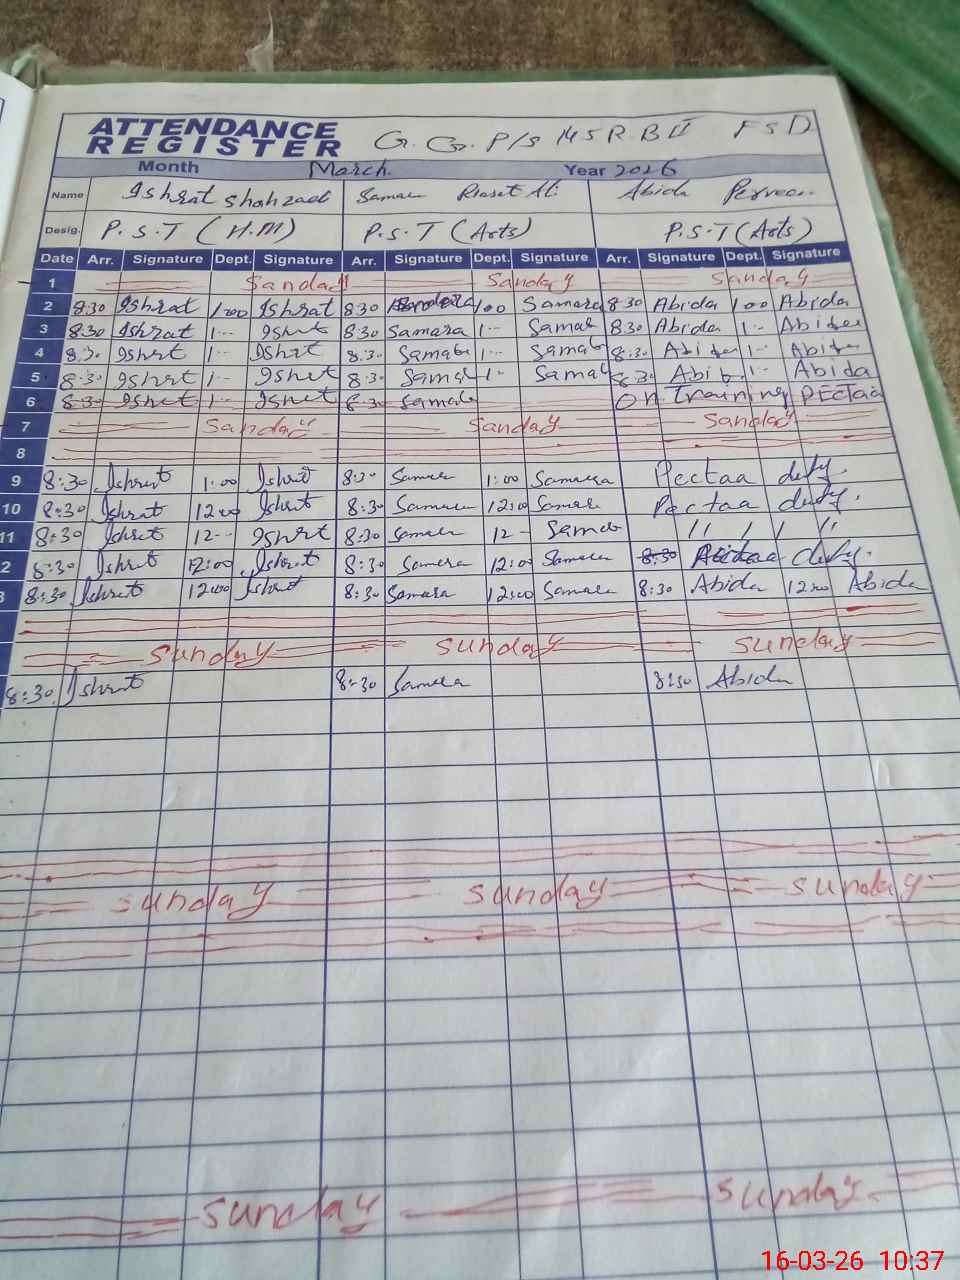 ATTENDANCE
REGISTER G. G. P/S MSRB II FSD
Month March. Year 2026
Name Ishrat Shahzad Samar Riasat Ali Abida Perveen
Desig. P.S.T (H.M) P.S.T (Arts) P.S.T (Arts)
Date Arr. Signature Dept. Signature Arr. Signature Dept. Signature Arr. Signature Dept. Signature
1 Sanday Sanday Sanday
2 8:30 Ishrat 1:00 Ishrat 8:30 1:00 Samara 8:30 Abida 1:00 Abida
3 8:30 Ishrat 1-- Ishrt 8:30 Samara 1-- Samar 8:30 Abida 1-- Abida
4 8:30 Ishrt 1-- Ishrt 8:30 Samar 1-- Samar 8:30 Abida 1-- Abida
5 8:30 Ishrt 1-- Ishrt 8:30 Samar 1-- Samar 8:30 Abida 1-- Abida
6 8:30 Ishrt 1-- Ishrt 8:30 Samar On Training PECTaa
7 Sanday Sanday Sanday
8
9 8:30 Ishrat 1:00 Ishrat 8:30 Samara 1:00 Samara Pectaa duty.
10 8:30 Ishrat 12:00 Ishrat 8:30 Samara 12:00 Samara Pectaa duty.
11 8:30 Ishrat 12-- Ishrt 8:30 Samara 12-- Samar // / / //
2 8:30 Ishrt 12:00 Ishrat 8:30 Samara 12:00 Samara 8:30 duty.
3 8:30 Ishrat 12:00 Ishrat 8:30 Samara 12:00 Samara 8:30 Abida 12:00 Abida
Sunday Sunday Sunday
8:30 Ishrat 8:30 Samara 8:30 Abida
Sunday Sunday Sunday
Sunday Sunday
16-03-26 10:37